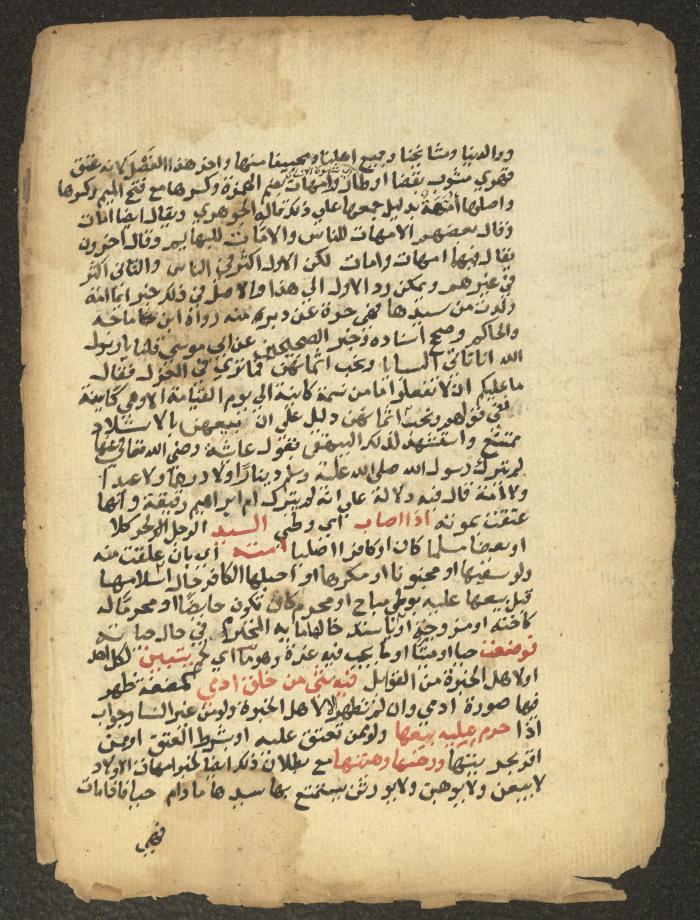 ووالدينا ومشايخنا وجميع اهلينا ومحبينا منها واخر هذا الفصل لانه عتق
قهري مشوب بقضا اوطار وامهات بضم الهمزة وكسرها مع فتح الميم وكسرها
واصلها امهة بدليل جمعها علي ذلك قاله الجوهري ويقال ايضا امات
وقال بعضهم الامهات للناس والامات للبهايم وقال اخرون
يقال فيها امهات وامات لكن الاول اكثر في الناس والثاني اكثر
في غيرهم ويمكن رد الاول الي هذا والاصل في ذلك خبر ايما امة
ولدت من سيدها فهي حرة عن دبر منه رواه ابن ماجه
والحاكم وصحح اسناده وخبر الصحيحين عن ابي موسي قلنا يا رسول
الله انا ناتي السبايا ونحب اثمانهن فما تري في العزل فقال
ما عليكم ان لا تفعلوا ما من نسمة كاينة الي يوم القيامة الا وهي كاينة
ففي قولهم ونحب اثمانهن دليل علي ان بيعهن بالاستيلاد
ممتنع واستشهد لذلك البيهقي بقول عائشة رضي الله تعالي عنها
لم يترك رسول الله صلي الله عليه وسلم دينارا ولا درهما ولا عبدا
ولا امة قال فيه دلالة علي انه لم يترك ام ابراهيم رقيقة وانها
عتقت بموته اذا اصاب اي وطي السيد الرجل الحر كلا
او بعضا مسلما كان او كافرا اصليا امته اي بان علقت منه
ولو سفيها او مجنونا او مكرها او احبلها الكافر حال اسلامها
قبل بيعها عليه بوطي مباح او محرم كان تكون حايضا او محرما له
كاخته او مزوجة او باستدخالها مايه المحترم في حال حياته
فوضعت حيا او ميتا او ما يجب فيه غرة وهو ما اي لحم يتبين لكل احد
او لاهل الخبرة من القوابل فيه شي من خلق ادمي كمضغة ظهر
فيها صورة ادمي وان لم تظهر الا لاهل الخبرة ولو من غير النسا وجواب
اذا حرم عليه بيعها ولو ممن تعتق عليه او بشرط العتق او ممن
اقر بحريتها ورهنها وهبتها مع بطلان ذلك ايضا لخبر امهات الاولاد
لا يبعن ولا يوهبن ولا يورثن يستمتع بها سيدها ما دام حيا فاذا مات
فهي